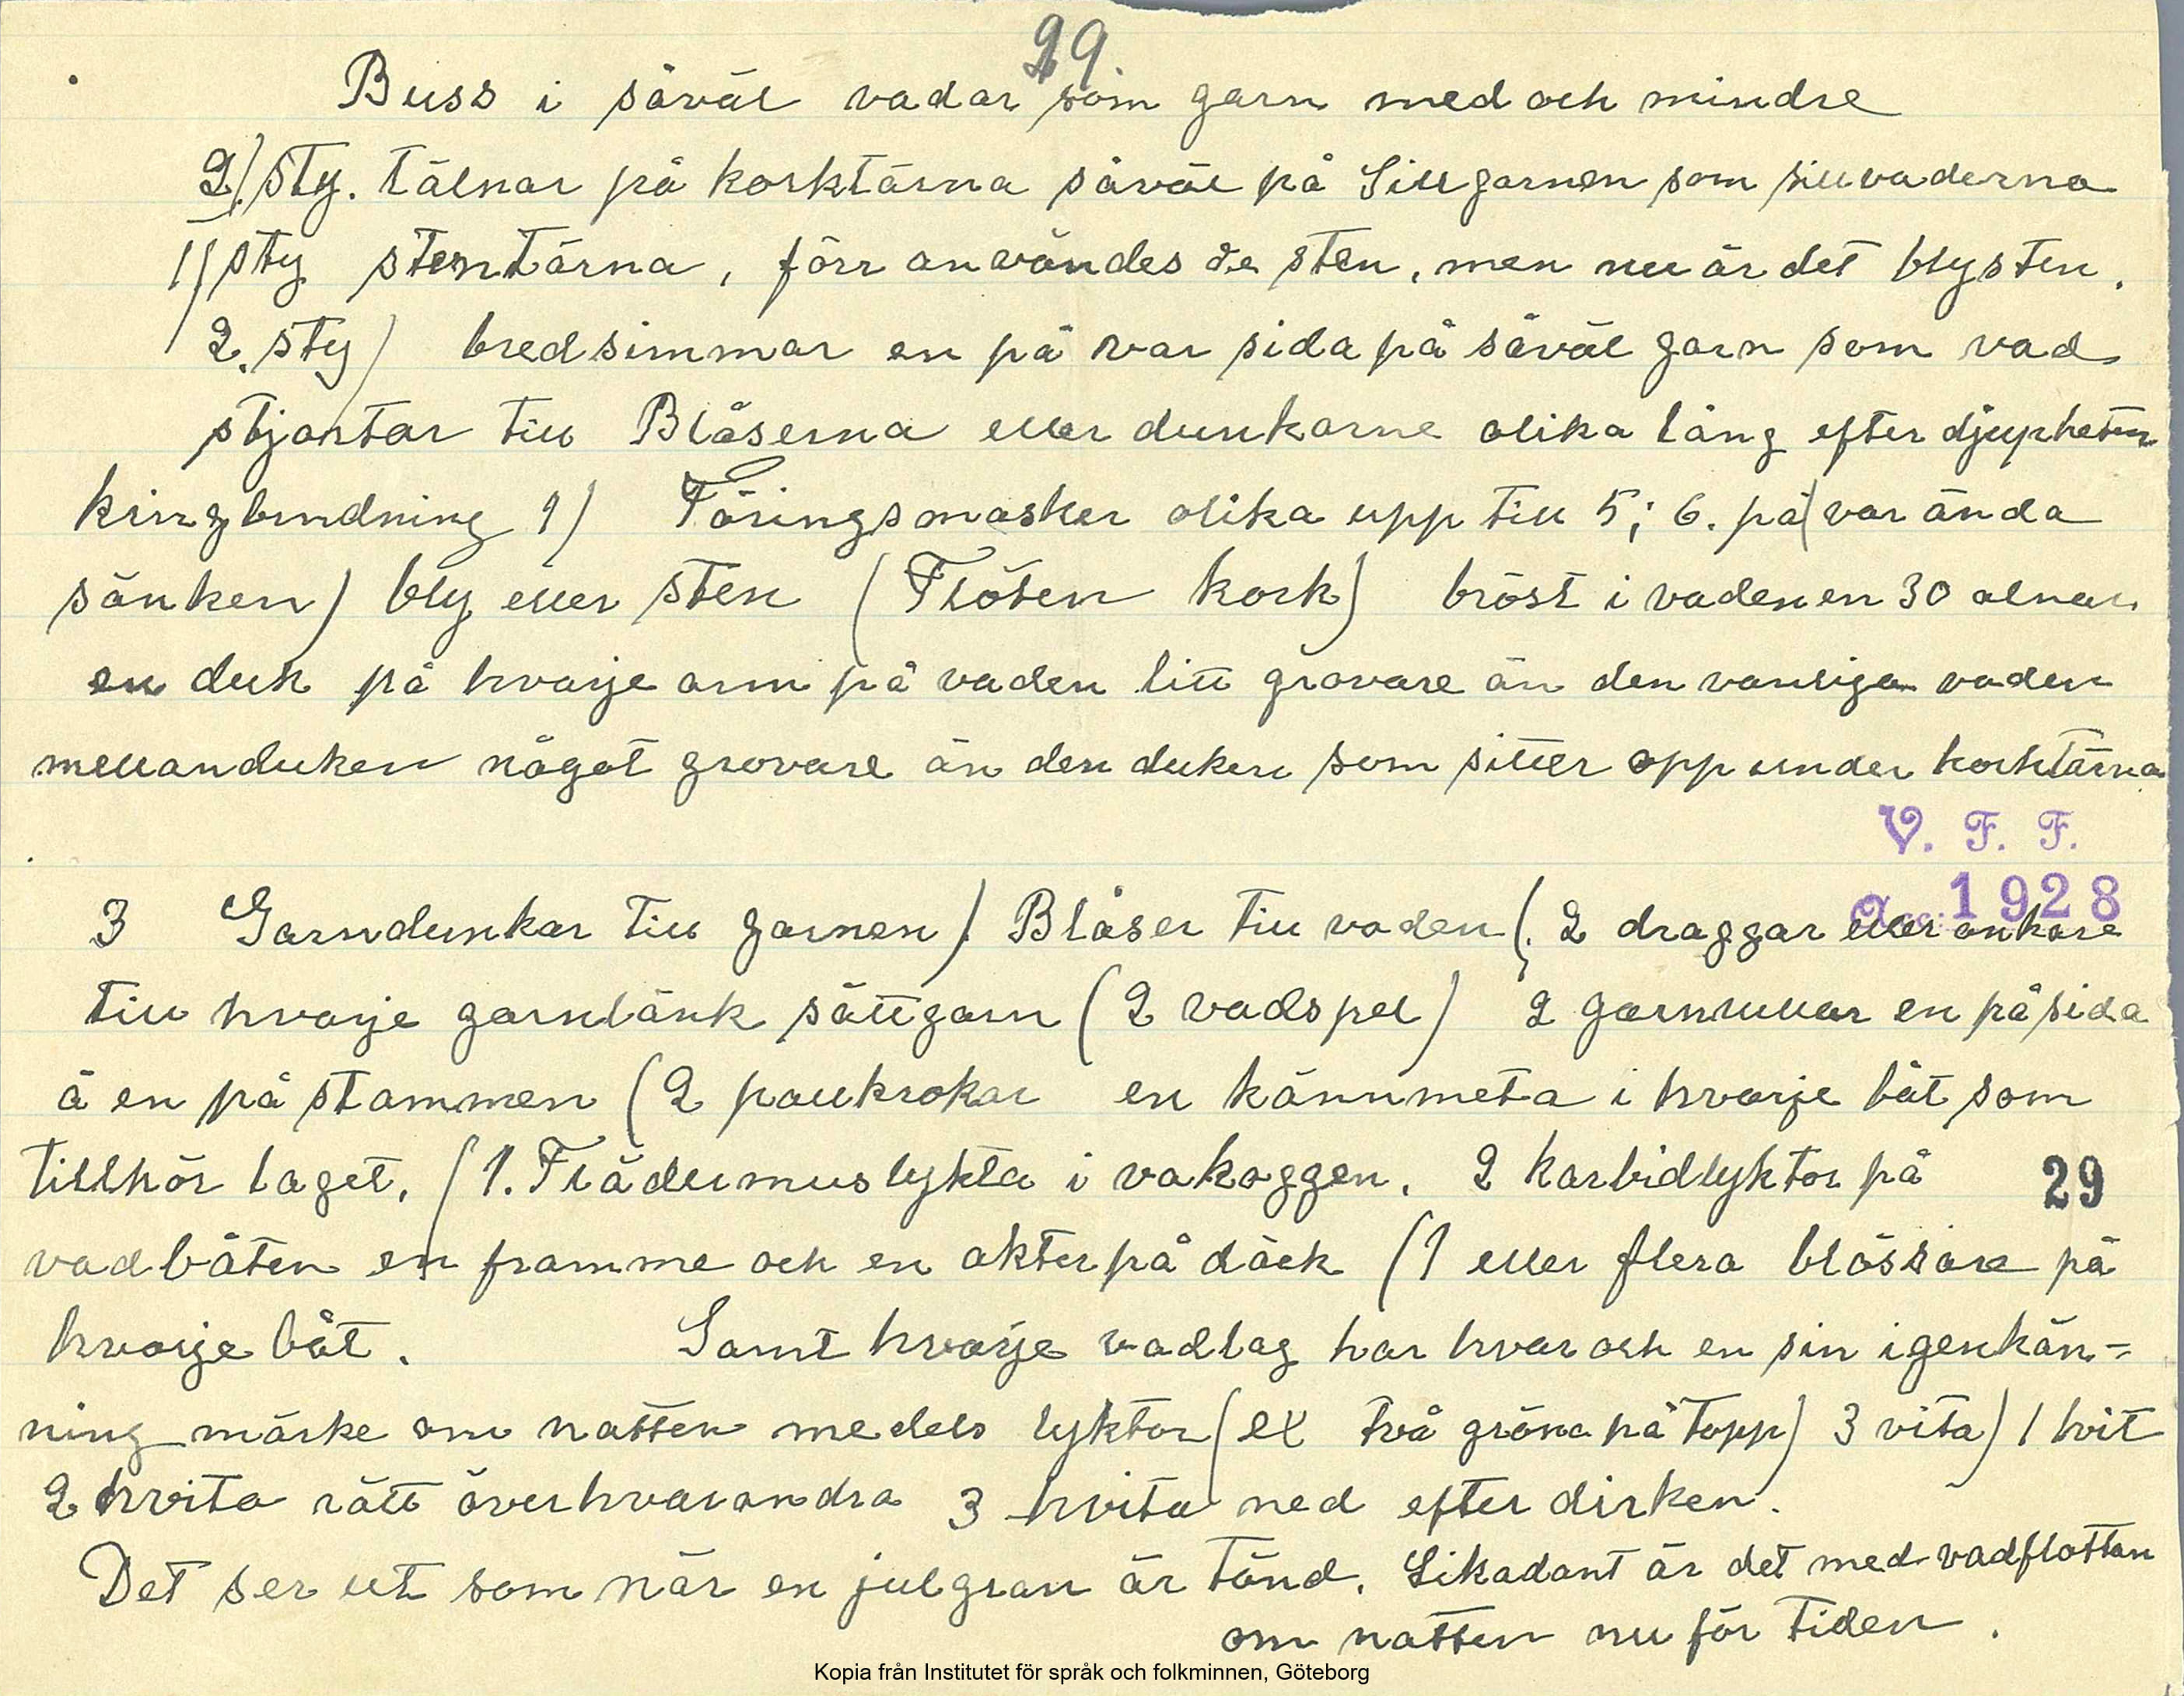 29.
Buss i såväl vadar som garn med och mindre
2/. sty. tälnar på korktärna såväl på Sillgarnen som sillvaderna
1/ sty stentärna, förr användes de sten, men nu är det blysten.
2. sty) bredsimmar en på var sida på såväl garn som vad
stjärtar till Blåserna eller dunkarne olika lång efter djupheten
kringbindning 1) Töringsmasker olika upp till 5; 6. på var ända
sänken) bly eller sten (Flöten kork) bröst i vaden en 30 alnar
en duk på hvarje arm på vaden litt grovare än den vanliga vaden
mellanduken något grovare än den duken som sitter opp under korktärna
V. F. F.
Acc: 1928
3 Garndunkar till garnen). Blåser till vaden (. 2 draggar eller ankare
till hvarje garnlänk sättgarn (2 vadspel) 2 garnrullar en på sida
å en på stammen (2 pallkrokar en kännmeta i hvarje båt som
tillhör laget. (1. Flädermuslykta i vakaggen. 2 karbidlyktor på
29
vadbåten en framme och en akter på däck (1 eller flera blössare på
hvarje båt. Samt hvarje vadlag har hvar och en sin igenkän=
ning märke om natten medels lyktor (ex två gröna på topp) 3 vita) 1 hvit
2 hvita rätt över hvarandra 3 hvita ned efter dirken.
Det ser ut som när en julgran är tänd. Likadant är det med vadflottan
om natten nu för tiden.
Kopia från Institutet för språk och folkminnen, Göteborg